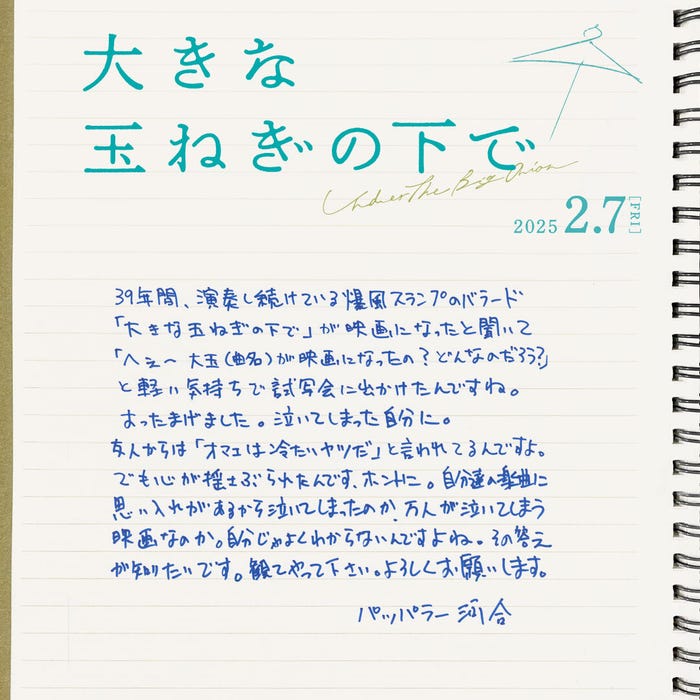 大きな
玉ねぎの下で
Under The Big Onion
2025 2.7 [FRI]
39年間、演奏し続けている爆風スランプのバラード
「大きな玉ねぎの下で」が映画になったと聞いて
「へぇ〜 大玉(曲名)が映画になったの?どんなのだろう?」
と軽い気持ちで試写会に出かけたんですね。
おったまげました。泣いてしまった自分に。
友人からは「オマエは冷たいヤツだ」と言われてるんですよ。
でも心が揺さぶられたんです、ホントに。自分達の楽曲に
思い入れがあるから泣いてしまったのか、万人が泣いてしまう
映画なのか。自分じゃよくわからないんですよね。その答え
が知りたいです。観てやって下さい。よろしくお願いします。
パッパラー河合